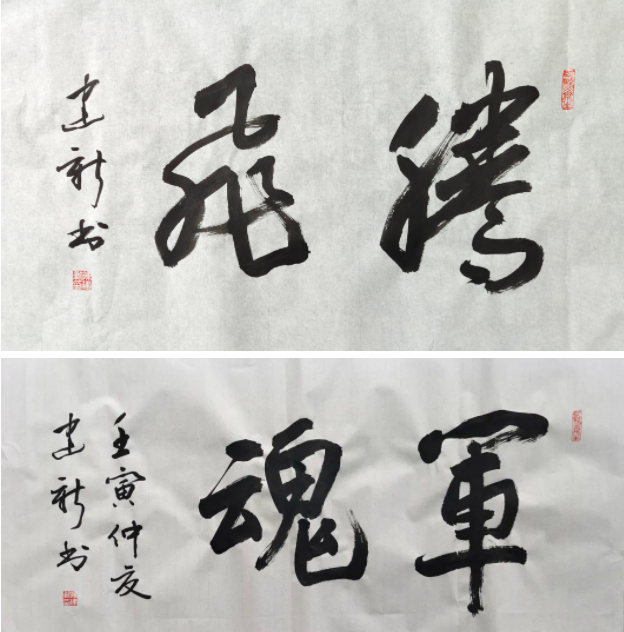 騰飛
建新书
軍魂
壬寅仲夏
建新书